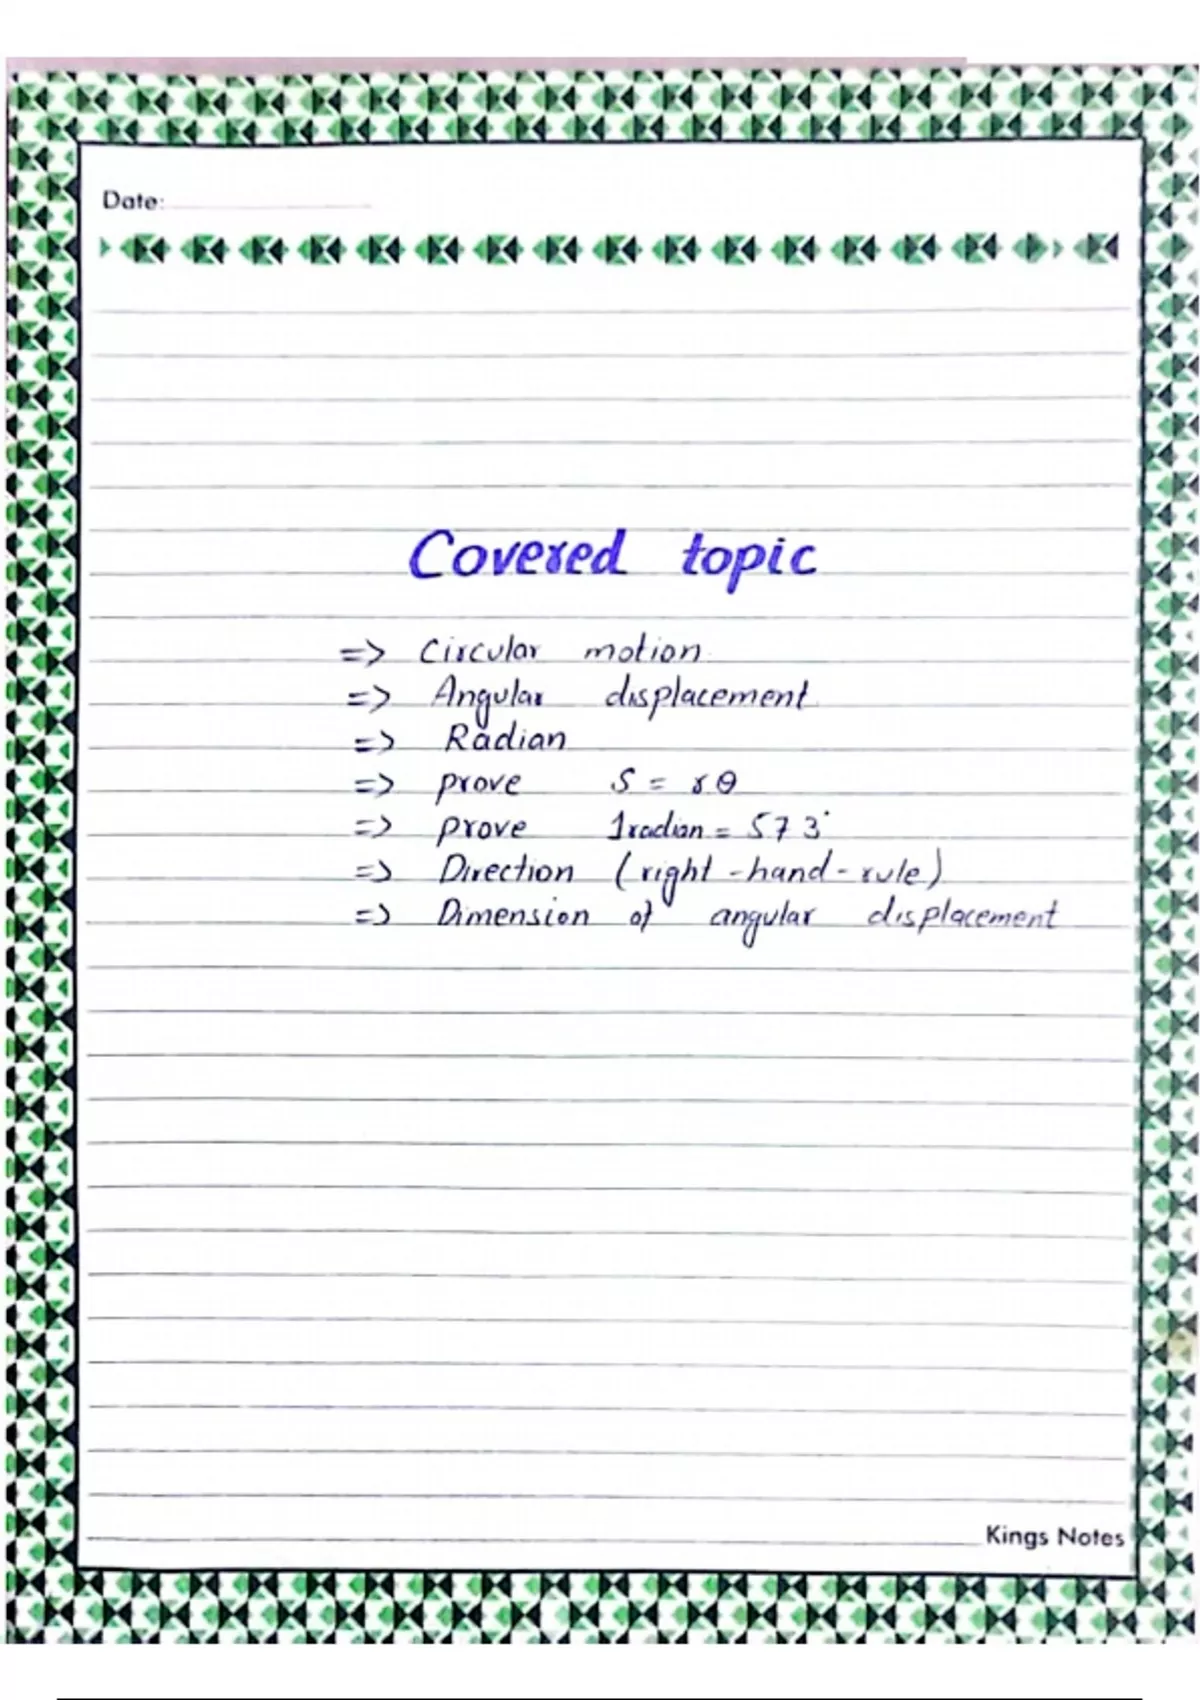 Date:
Covered topic
=> Circular motion
=> Angular displacement
=> Radian
=> prove S = rθ
=> prove 1radian = 57 3°
=> Direction (right-hand-rule)
=> Dimension of angular displacement
Kings Notes